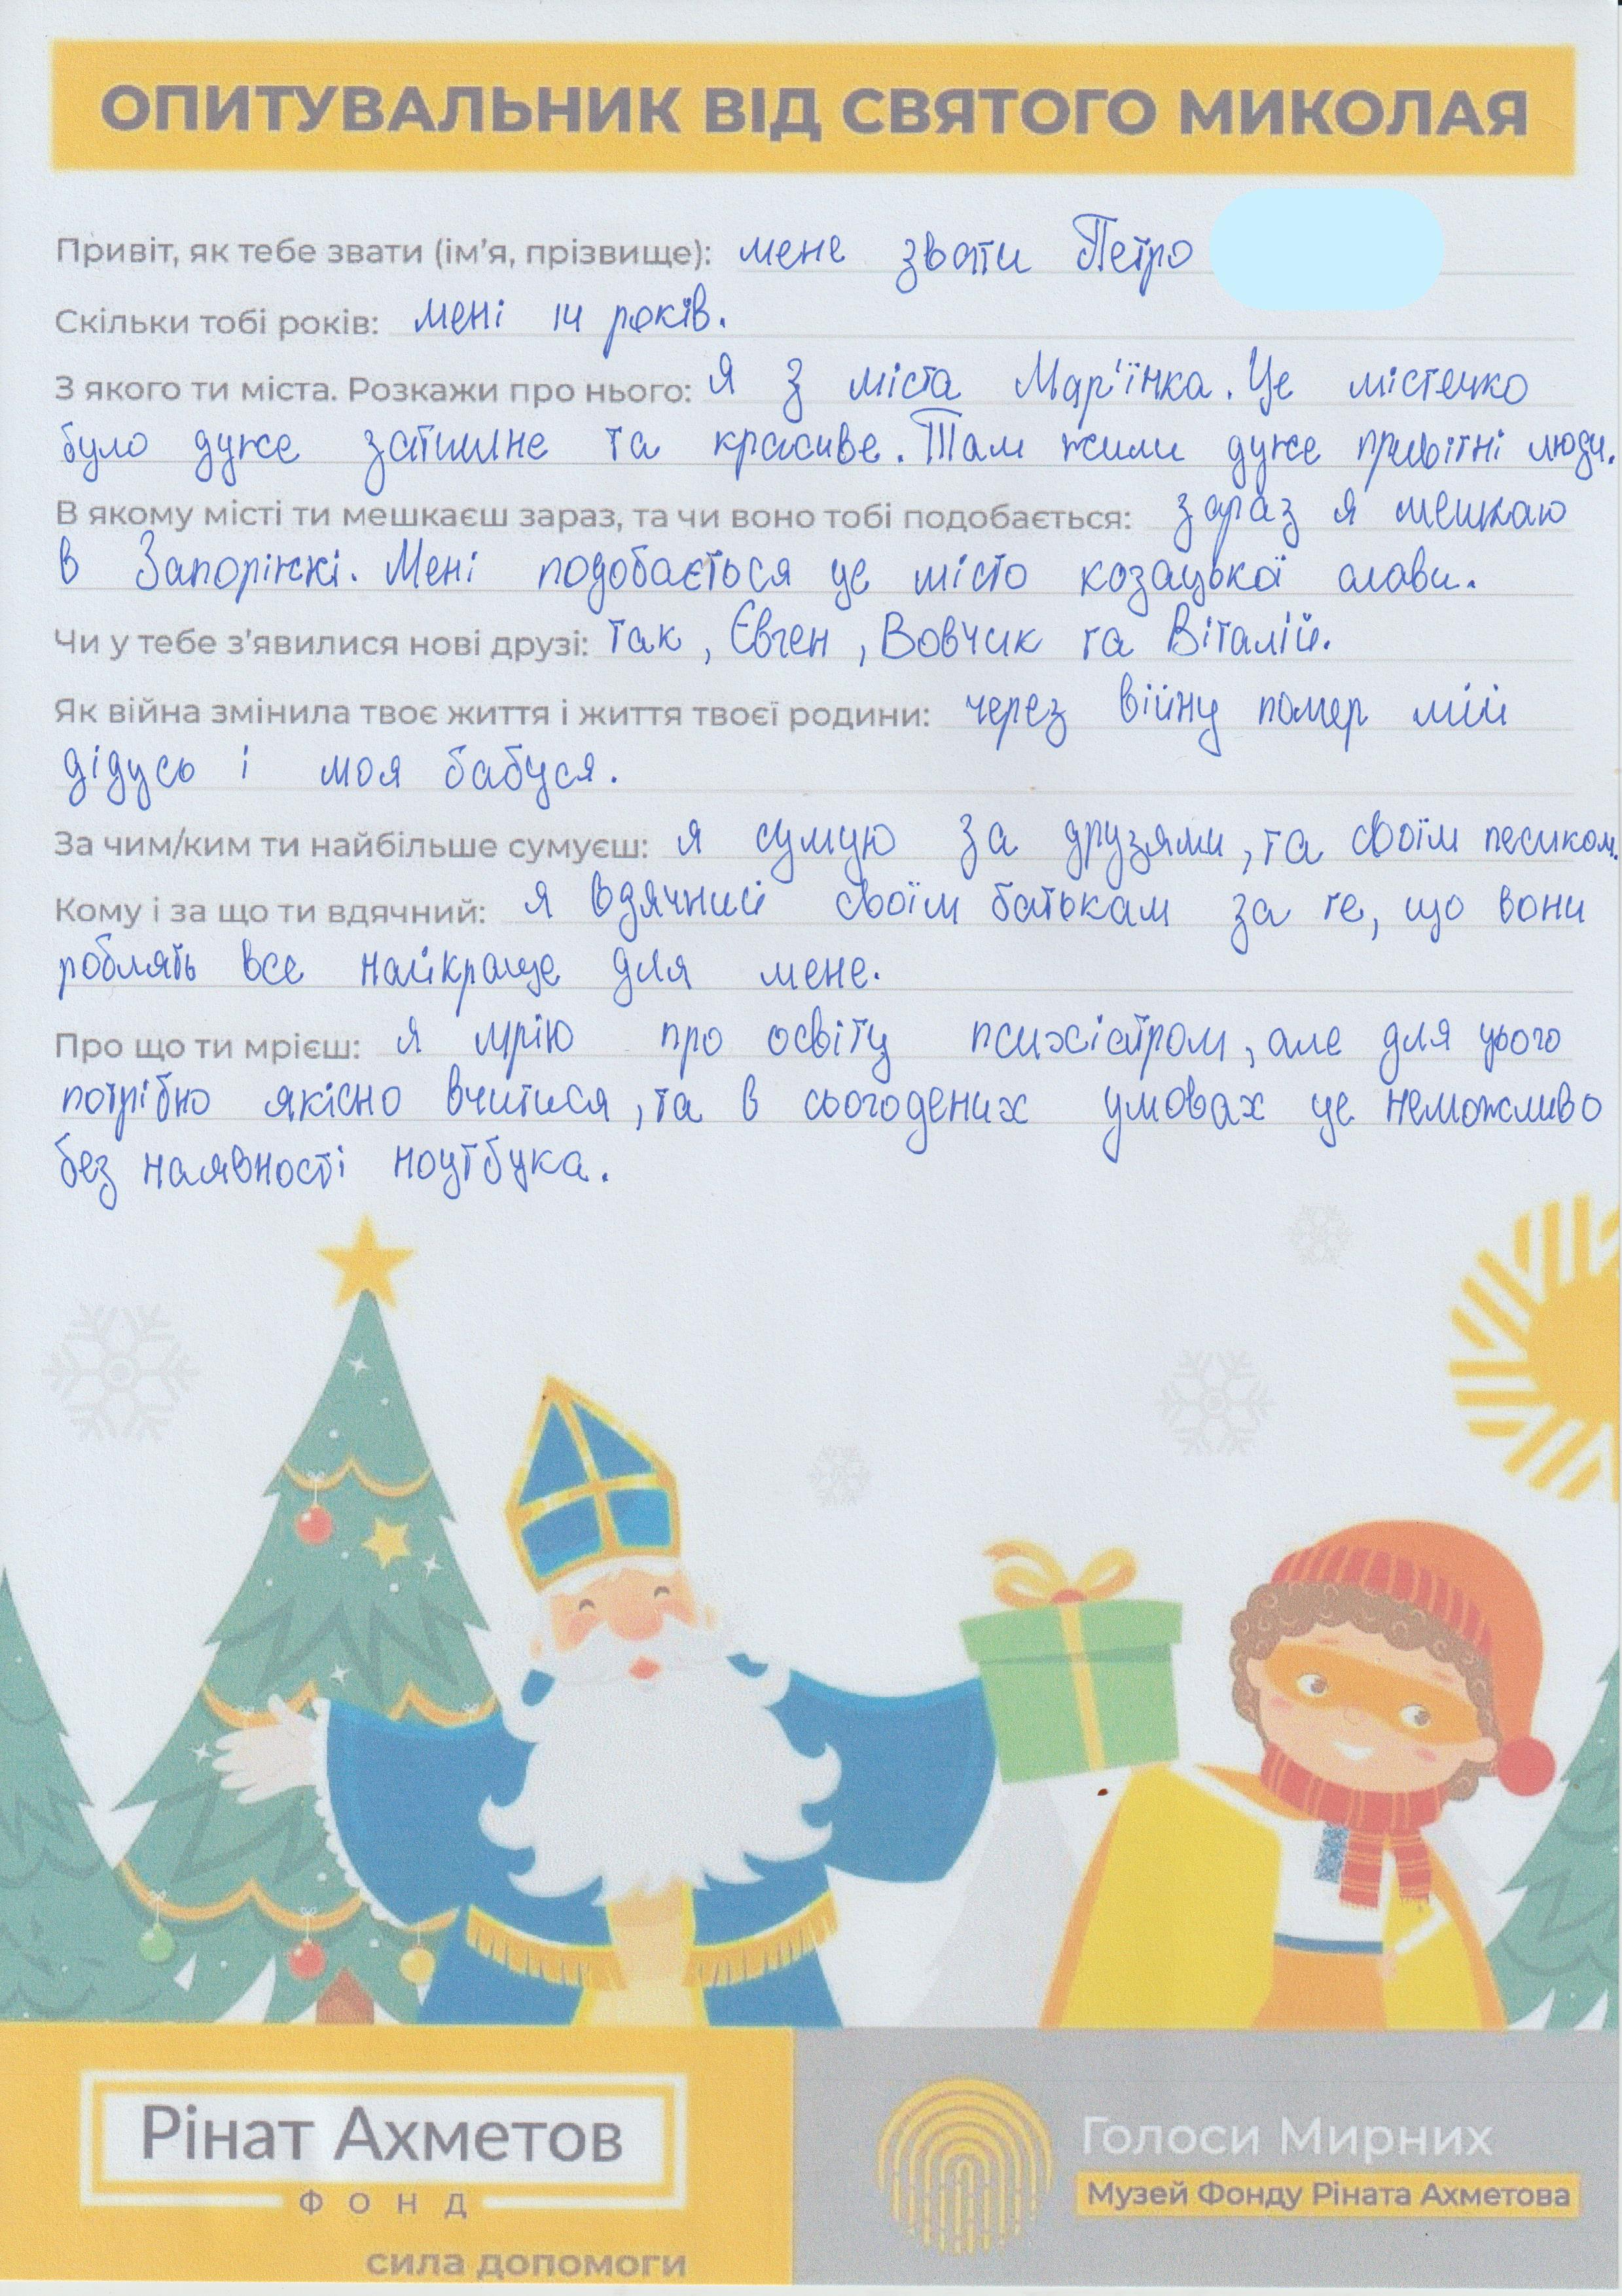 ОПИТУВАЛЬНИК ВІД СВЯТОГО МИКОЛАЯ
Привіт, як тебе звати (ім'я, прізвище): мене звати Петро
Скільки тобі років: мені 14 років.
З якого ти міста. Розкажи про нього: Я з міста Мар'їнка. Це містечко
було дуже затишне та красиве. Там жили дуже привітні люди.
В якому місті ти мешкаєш зараз, та чи воно тобі подобається: зараз я мешкаю
в Запоріжжі. Мені подобається це місто козацької слави.
Чи у тебе з'явилися нові друзі: так, Євген, Вовчик та Віталій.
Як війна змінила твоє життя і життя твоєї родини: через війну помер мій
дідусь і моя бабуся.
За чим/ким ти найбільше сумуєш: я сумую за друзями, та своїм песиком.
Кому і за що ти вдячний: я вдячний своїм батькам за те, що вони
роблять все найкраще для мене.
Про що ти мрієш: я мрію про освіту психіатром, але для цього
потрібно якісно вчитися, та в сьогодених умовах це неможливо
без наявності ноутбука.
Рінат Ахметов
ФОНД
сила допомоги
Голоси Мирних
Музей Фонду Ріната Ахметова